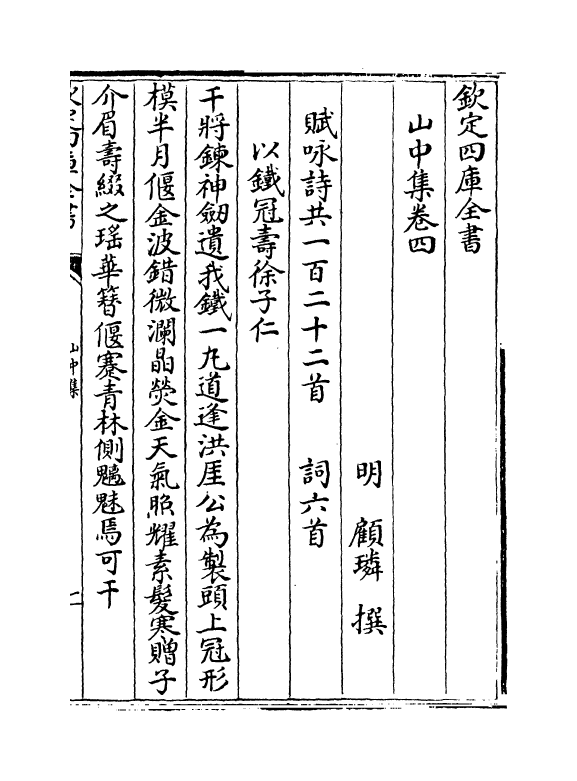 欽定四庫全書
山中集卷四
明 顧璘 撰
賦咏詩共一百二十二首 詞六首
以鐵冠壽徐子仁
干將鍊神劒遺我鐵一丸道逢洪厓公為製頭上冠形
模半月偃金波錯微瀾晶熒金天氣照耀素髮寒贈子
介眉壽綴之瑤華簪偃蹇青林側魑魅焉可干
山中集